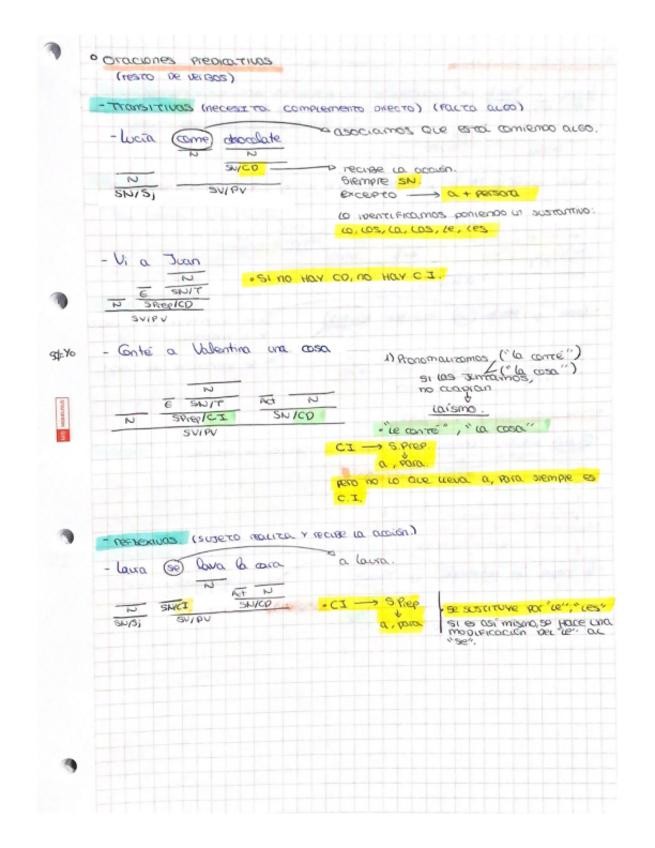 ° Oraciones PREDICATIVAS
(RESTO DE VERBOS)
- TRANSITIVAS (necesita complemento directo) (FALTA ALGO)
- Lucía come chocolate → asociamos que está comiendo algo.
N N
SN/CD → recibe la acción.
Siempre SN.
excepto → a + persona
N
SN/Sj SV/PV
lo identificamos poniendo un sustantivo:
lo, los, la, las, le, les
- Vi a Juan
• Si no hay CD, no hay CI.
N
E SN/T
N SPrep/CD
SV/PV
SJ: Yo - Conté a Valentina una cosa
1) Pronominalizamos ("la conté")
("la cosa")
si las juntamos,
no cuadran
↓
laísmo.
N
E SN/T Act N
N SPrep/CI SN/CD
SV/PV
• "le conté", "la cosa"
CI → S.Prep.
↓
a, para.
pero no lo que lleva a, para siempre es
C.I.
- REFLEXIVAS (SUJETO REALIZA Y RECIBE LA ACCIÓN.)
- Laura se lava la cara → a Laura.
N
Act N
N SN/CI SN/CD
SN/Sj SV/PV
• CI → S.Prep
↓
a, para
• SE SUSTITUYE POR "LE", "LES"
SI ES ASÍ MISMO, SE HACE UNA
MODIFICACIÓN DEL "LE" AL
"SE".